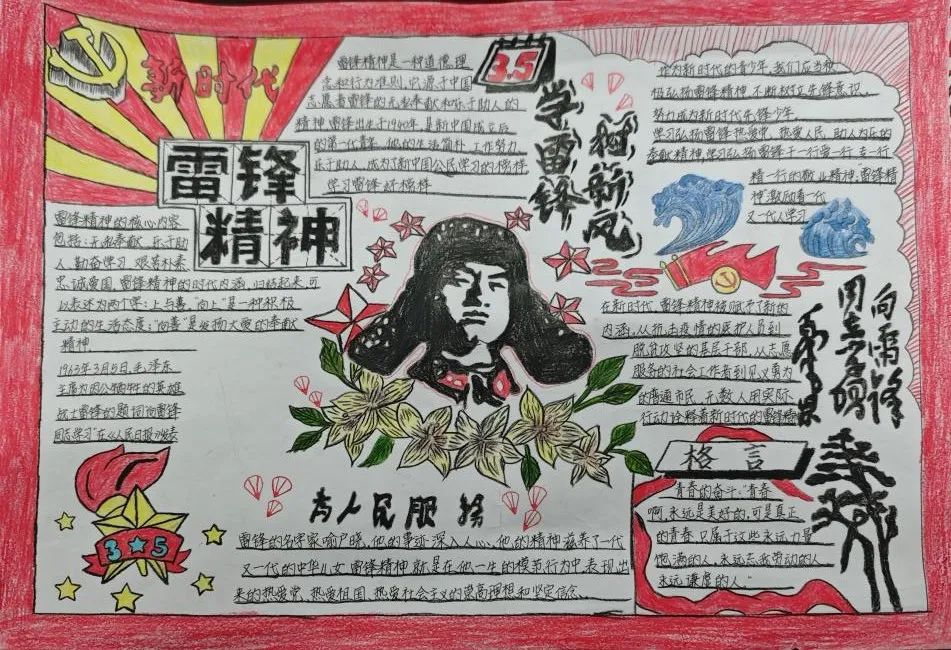 新时代
雷锋
精神
雷锋精神的核心内容
包括：无私奉献、乐于助
人、勤奋学习、艰苦朴素
忠诚爱国，雷锋精神的时代内涵，归结起来，可
以表述为两个字：上与善，"向上"是一种积极
主动的生活态度；"向善"是发扬大爱的奉献
精神
1963年3月5日，毛泽东
主席为因公牺牲的英雄
战士雷锋的题词"向雷锋
同志学习"在《人民日报》发表
3★5
雷锋精神是一种道德理
念和行为准则，它源于中国
志愿者雷锋的无私奉献和乐于助人的
精神，雷锋出生于1940年，是新中国成立后
的第一代青年，他的生活简朴，工作努力，
乐于助人，成为了新中国公民学习的榜样，
学习雷锋好榜样
3.5
学雷锋
树新风
作为新时代的青少年，我们应当积
极弘扬雷锋精神，不断树立先锋意识，
努力成为新时代先锋少年
学习弘扬雷锋热爱党、热爱人民、助人为乐的
奉献精神，学习弘扬雷锋干一行爱一行、专一行
精一行的敬业精神，雷锋精
神，激励着一代
又一代人学习
在新时代，雷锋精神被赋予了新的
内涵，从抗击疫情的医护人员到
脱贫攻坚的基层干部，从志愿
服务的社会工作者到见义勇为
的普通市民，无数人用实际
行动诠释着新时代的雷锋精神
向雷锋
同志学习
毛泽东
格言
青春的奋斗："青春
啊，永远是美好的，可是真正
的青春，只属于这些永远力争
上游的人，永远忘我劳动的人，
永远谦虚的人。"
为人民服务
雷锋的名字家喻户晓，他的事迹深入人心，他的精神滋养了一代
又一代的中华儿女，雷锋精神就是在他一生的模范行为中表现出
来的热爱党、热爱祖国、热爱社会主义的崇高理想和坚定信念、